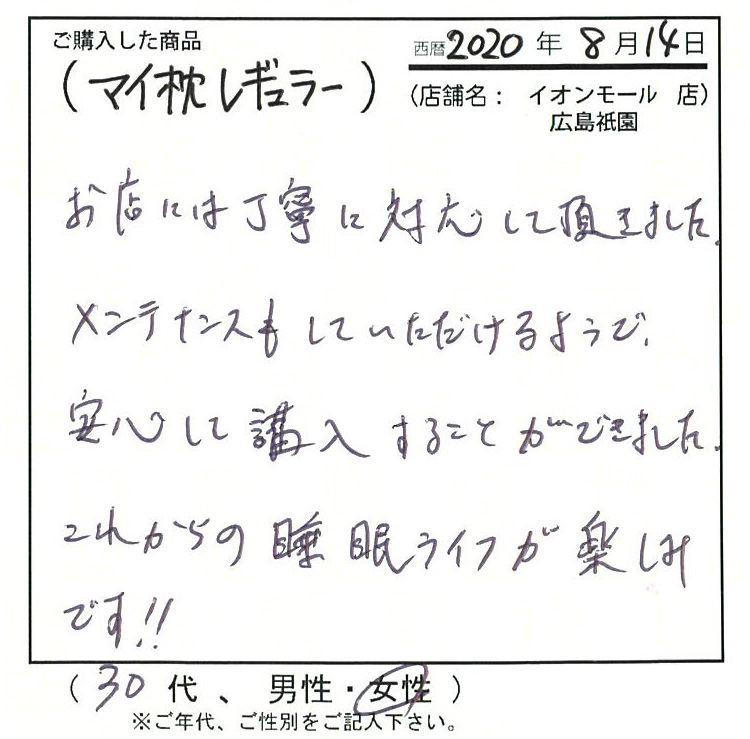 ご購入した商品
西暦2020年8月14日
(マイ枕レギュラー)
(店舗名: イオンモール 店)
広島祇園
お店には丁寧に対応して頂きました。
メンテナンスもしていただけるようで、
安心して講入することができました。
これからの睡眠ライフが楽しみ
です!!
(30代、男性・女性)
※ご年代、ご性別をご記入下さい。